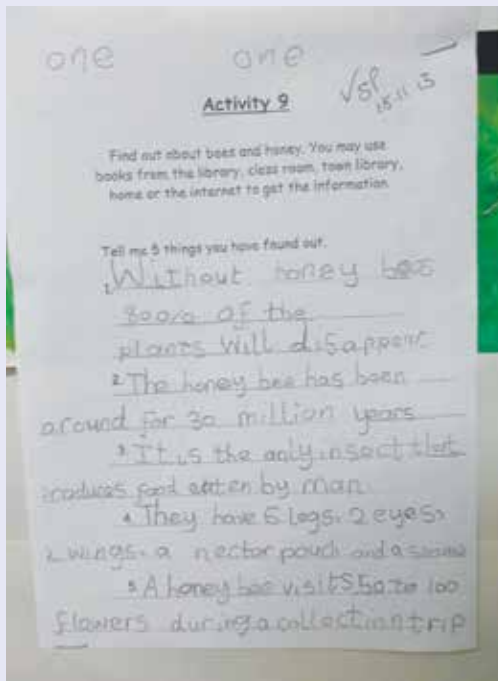 one one
Activity 9
Find out about bees and honey. You may use
books from the library, class room, town library,
home or the internet to get the information
Tell me 5 things you have found out.
1. Without honey bees
80% of the
plants will disappear
2. The honey bee has been
around for 30 million years
3. It is the only insect that
produces food eaten by man.
4. They have 6 legs, 2 eyes,
2 wings, a nector pouch and a
5. A honey bee visits 50 to 100
flowers during a collection trip